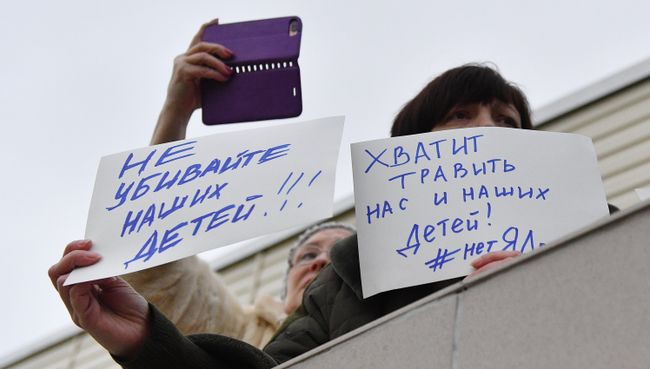 НЕ
УБИВАЙТЕ
НАШИХ
ДЕТЕЙ!!!
ХВАТИТ
ТРАВИТЬ
НАС И НАШИХ
ДЕТЕЙ!
#НЕТ ЯД